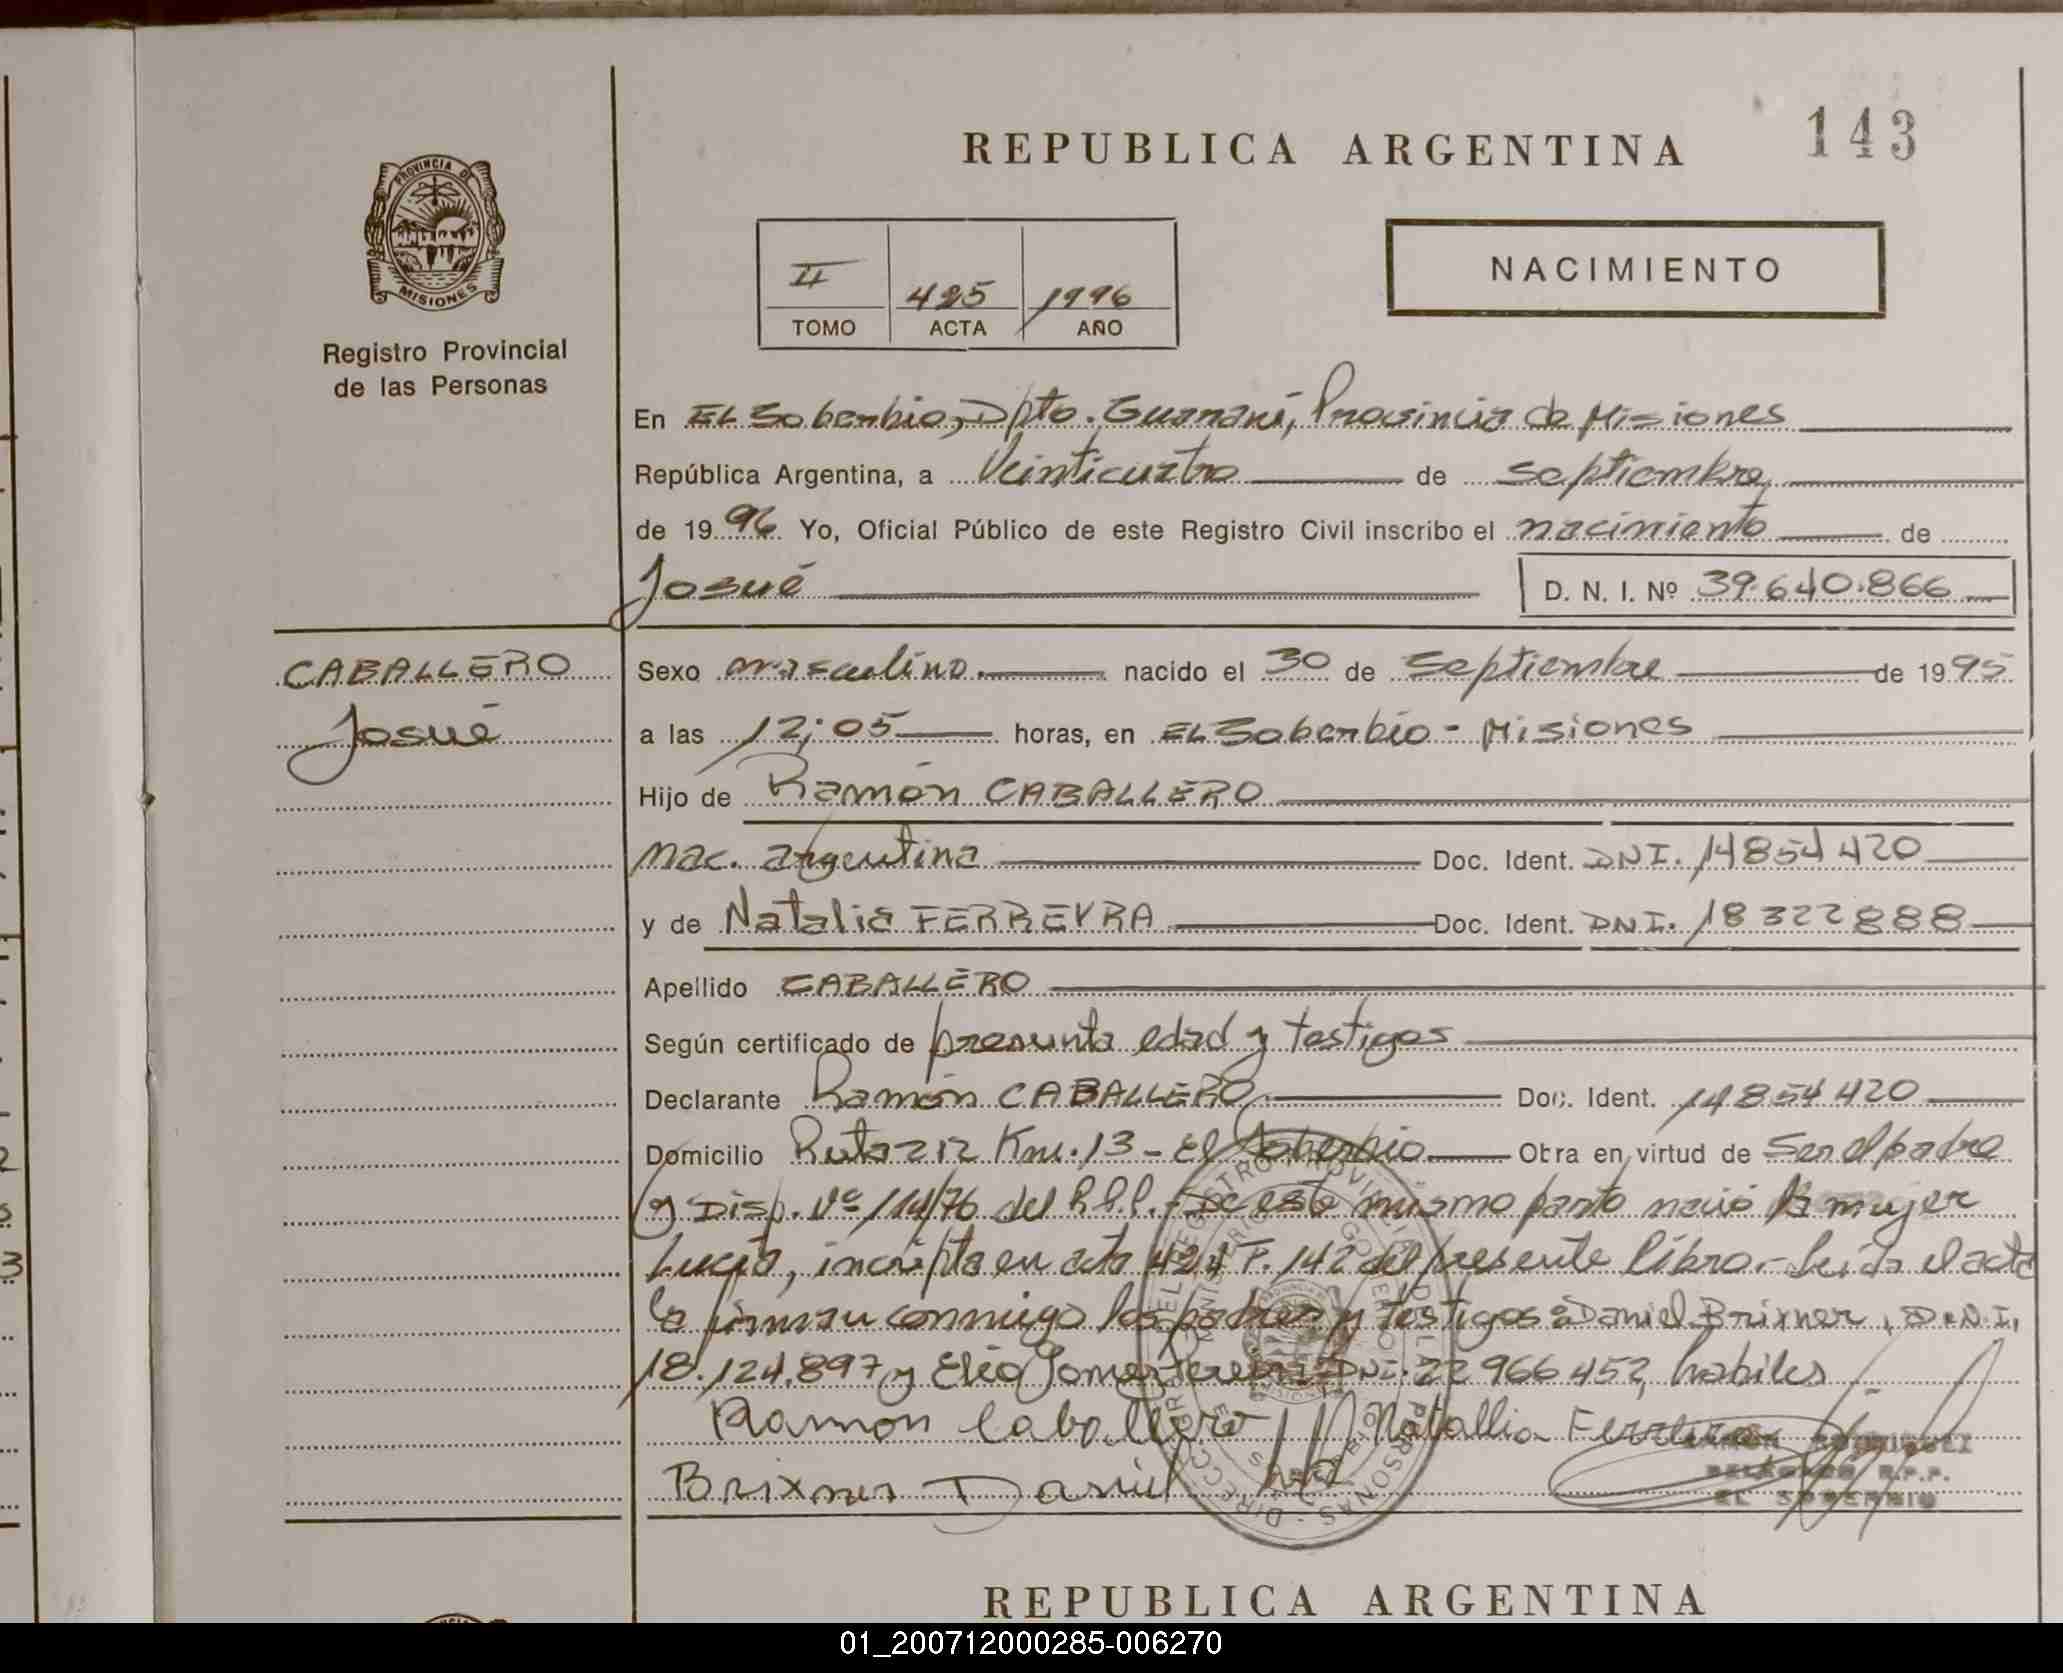 143
REPUBLICA ARGENTINA
PROVINCIA DE
MISIONES
Registro Provincial
de las Personas
II 425 1996
TOMO ACTA AÑO
NACIMIENTO
En EL Soberbio, Dpto. Guaraní, Provincia de Misiones
República Argentina, a Veinticuatro de septiembre
de 1996 Yo, Oficial Público de este Registro Civil inscribo el nacimiento de
Josué D. N. I. Nº 39.640.866
CABALLERO
Josué
Sexo masculino. nacido el 30 de Septiembre de 1995
a las 12:05 horas, en EL Soberbio - Misiones
Hijo de Ramón CABALLERO
nac. argentina Doc. Ident. DNI. 14854420
y de Natalia FERREYRA Doc. Ident. DNI. 18322888
Apellido CABALLERO
Según certificado de presunta edad y testigos
Declarante Ramón CABALLERO Doc. Ident. 14854420
Domicilio Ruta 212 Km. 13 - El Soberbio Obra en virtud de Ser el padre
y Disp. Nº 114/76 del R.P.P. - De este mismo parto nació la mujer
Lucía, incripta en acta 424 Fº. 142 del presente libro. - Leída el acta
la firman conmigo los padres y testigos: Daniel Brixner, D.N.I.
18.124.897 y Elio Gomes Pereira DNI. 22966452, habiles
Ramon Caballero Natallia Ferreira
Brixner Daniel
EL SOBERBIO
REPUBLICA ARGENTINA
01_200712000285-006270